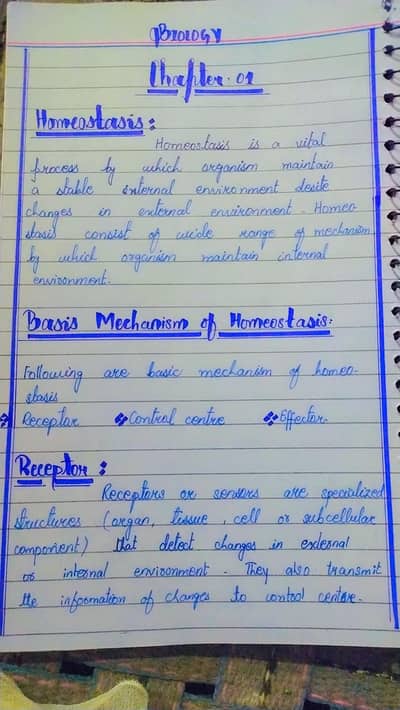 BIOLOGY
Chapter. 01
Homeostasis :
Homeostasis is a vital
process by which organism maintain
a stable external environment desite
changes in external environment. Homeo
stasis consist of wide range of mechanism
by which organism maintain internal
environment.
Basis Mechanism of Homeostasis:
Following are basic mechanism of homeo-
stasis
Receptor Control centre Effector.
Receptor :
Receptors or sensors are specialized
structures (organ, tissue, cell or subcellular
component) that detect changes in external
or internal environment. They also transmit
the information of changes to control centre.